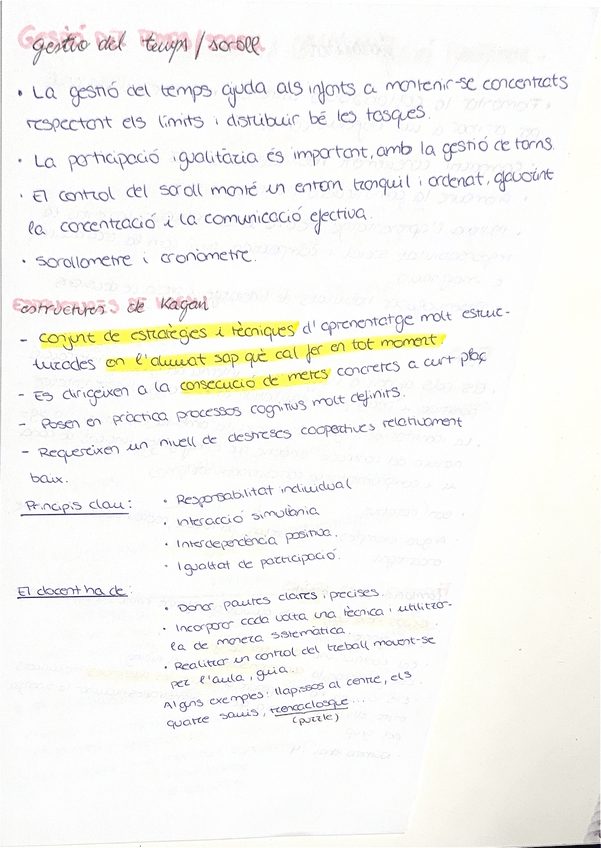 gestió del temps/scroll
• La gestió del temps ajuda als infants a mantenir-se concentrats
respectant els límits i distribuir bé les tasques.
• La participació igualitària és important, amb la gestió de torns.
• El control del scroll manté un entorn tranquil i ordenat, afavorint
la concentració i la comunicació efectiva.
• Scrollometre i cronòmetre.
estructures de Kagan
- conjunt de estratègies i tècniques d'aprenentatge molt estruc-
turades on l'alumnat sap què cal fer en tot moment.
- Es dirigeixen a la consecució de metes concretes a curt plaç
- Posen en pràctica processos cognitius molt definits.
- Requereixen un nivell de destreses cooperatives relativament
baix.
Principis clau: • Responsabilitat individual
• Interacció simultània
• Interdependència positiva.
• Igualtat de participació.
El docent ha de:
• Donar pautes clares i precises.
• Incorporar cada volta una tècnica i utilitzar-
la de manera sistemàtica.
• Realitzar un control del treball movent-se
per l'aula, guia.
Alguns exemples: llapissos al centre, els
quatre savis, trencaclosque...
(puzzle)